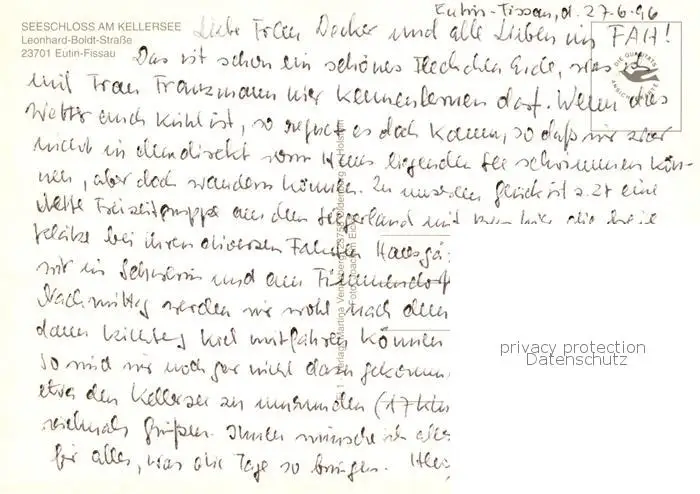 SEESCHLOSS AM KELLERSEE
Leonhard-Boldt-Straße
23701 Eutin-Fissau
Eutin-Fissau, d. 27.6.96
Liebe Frau Docker und alle Lieben im FAH!
Das ist schon ein schönes Fleckchen Erde, das ich
mit Frau Franzmann hier kennenlernen darf. Wenn das
Wetter auch kühl ist, so regnet es doch kaum, so daß wir zwar
nicht in dem direkt vorm Haus liegenden See schwimmen kön-
nen, aber doch wandern können. Zu unserem Glück ist z. Zt eine
nette Freizeitgruppe aus dem Siegerland mit
Plätze bei ihren diversen Fahrten Hausgä
wir in Schwerin und am Timmendorf
Nachmittag werden wir wohl nach dem
dann Kiel mitfahren können
So sind wir noch gar nicht dazu gekommen
etwa den Kellersee zu umrunden (17 km
nochmals grüßen. Ihnen wünsche ich alles
für alles, was die Tage so bringen.
DIE QUALITÄTS
ANSICHTSKARTE
privacy protection
Datenschutz